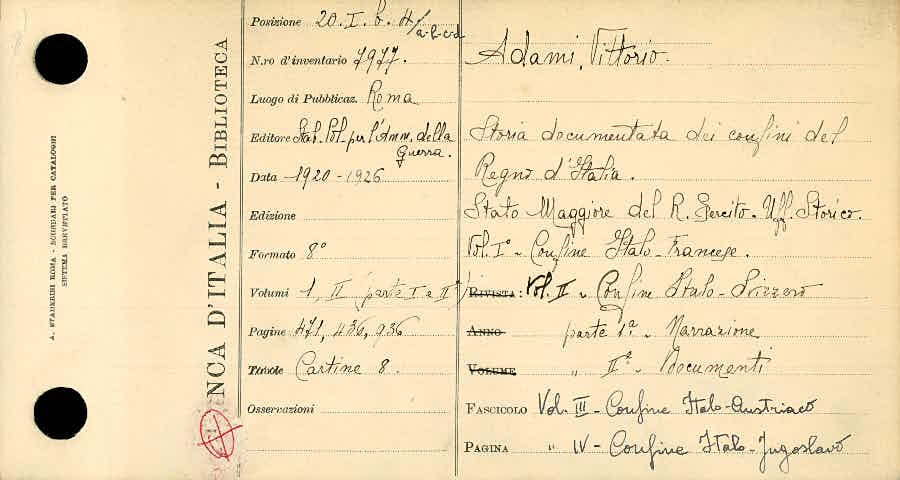 A. STADERINI ROMA - SCHEDARI PER CATALOGHI
SISTEMA BREVETTATO
NCA D'ITALIA - BIBLIOTECA
Posizione 20. I. b. 4/
a-b-c-d
N.ro d'inventario 7977.
Luogo di Pubblicaz. Roma
Editore Stab. Pol. per l'Amm. della
Guerra.
Data 1920-1926
Edizione
Formato 8°
Volumi 1, II (parte I e IIª)
Pagine 471, 436, 936
Tavole Cartine 8.
Osservazioni
Adami, Vittorio.
Storia documentata dei confini del
Regno d'Italia.
Stato Maggiore del R. Esercito. Uff. Storico.
Vol. I° - Confine Italo-Francese.
RIVISTA: Vol. II - Confine Italo-Svizzero
ANNO parte 1ª - Narrazione
VOLUME " IIª - Documenti
FASCICOLO Vol. III - Confine Italo-Austriaco
PAGINA " IV - Confine Italo-Jugoslavo